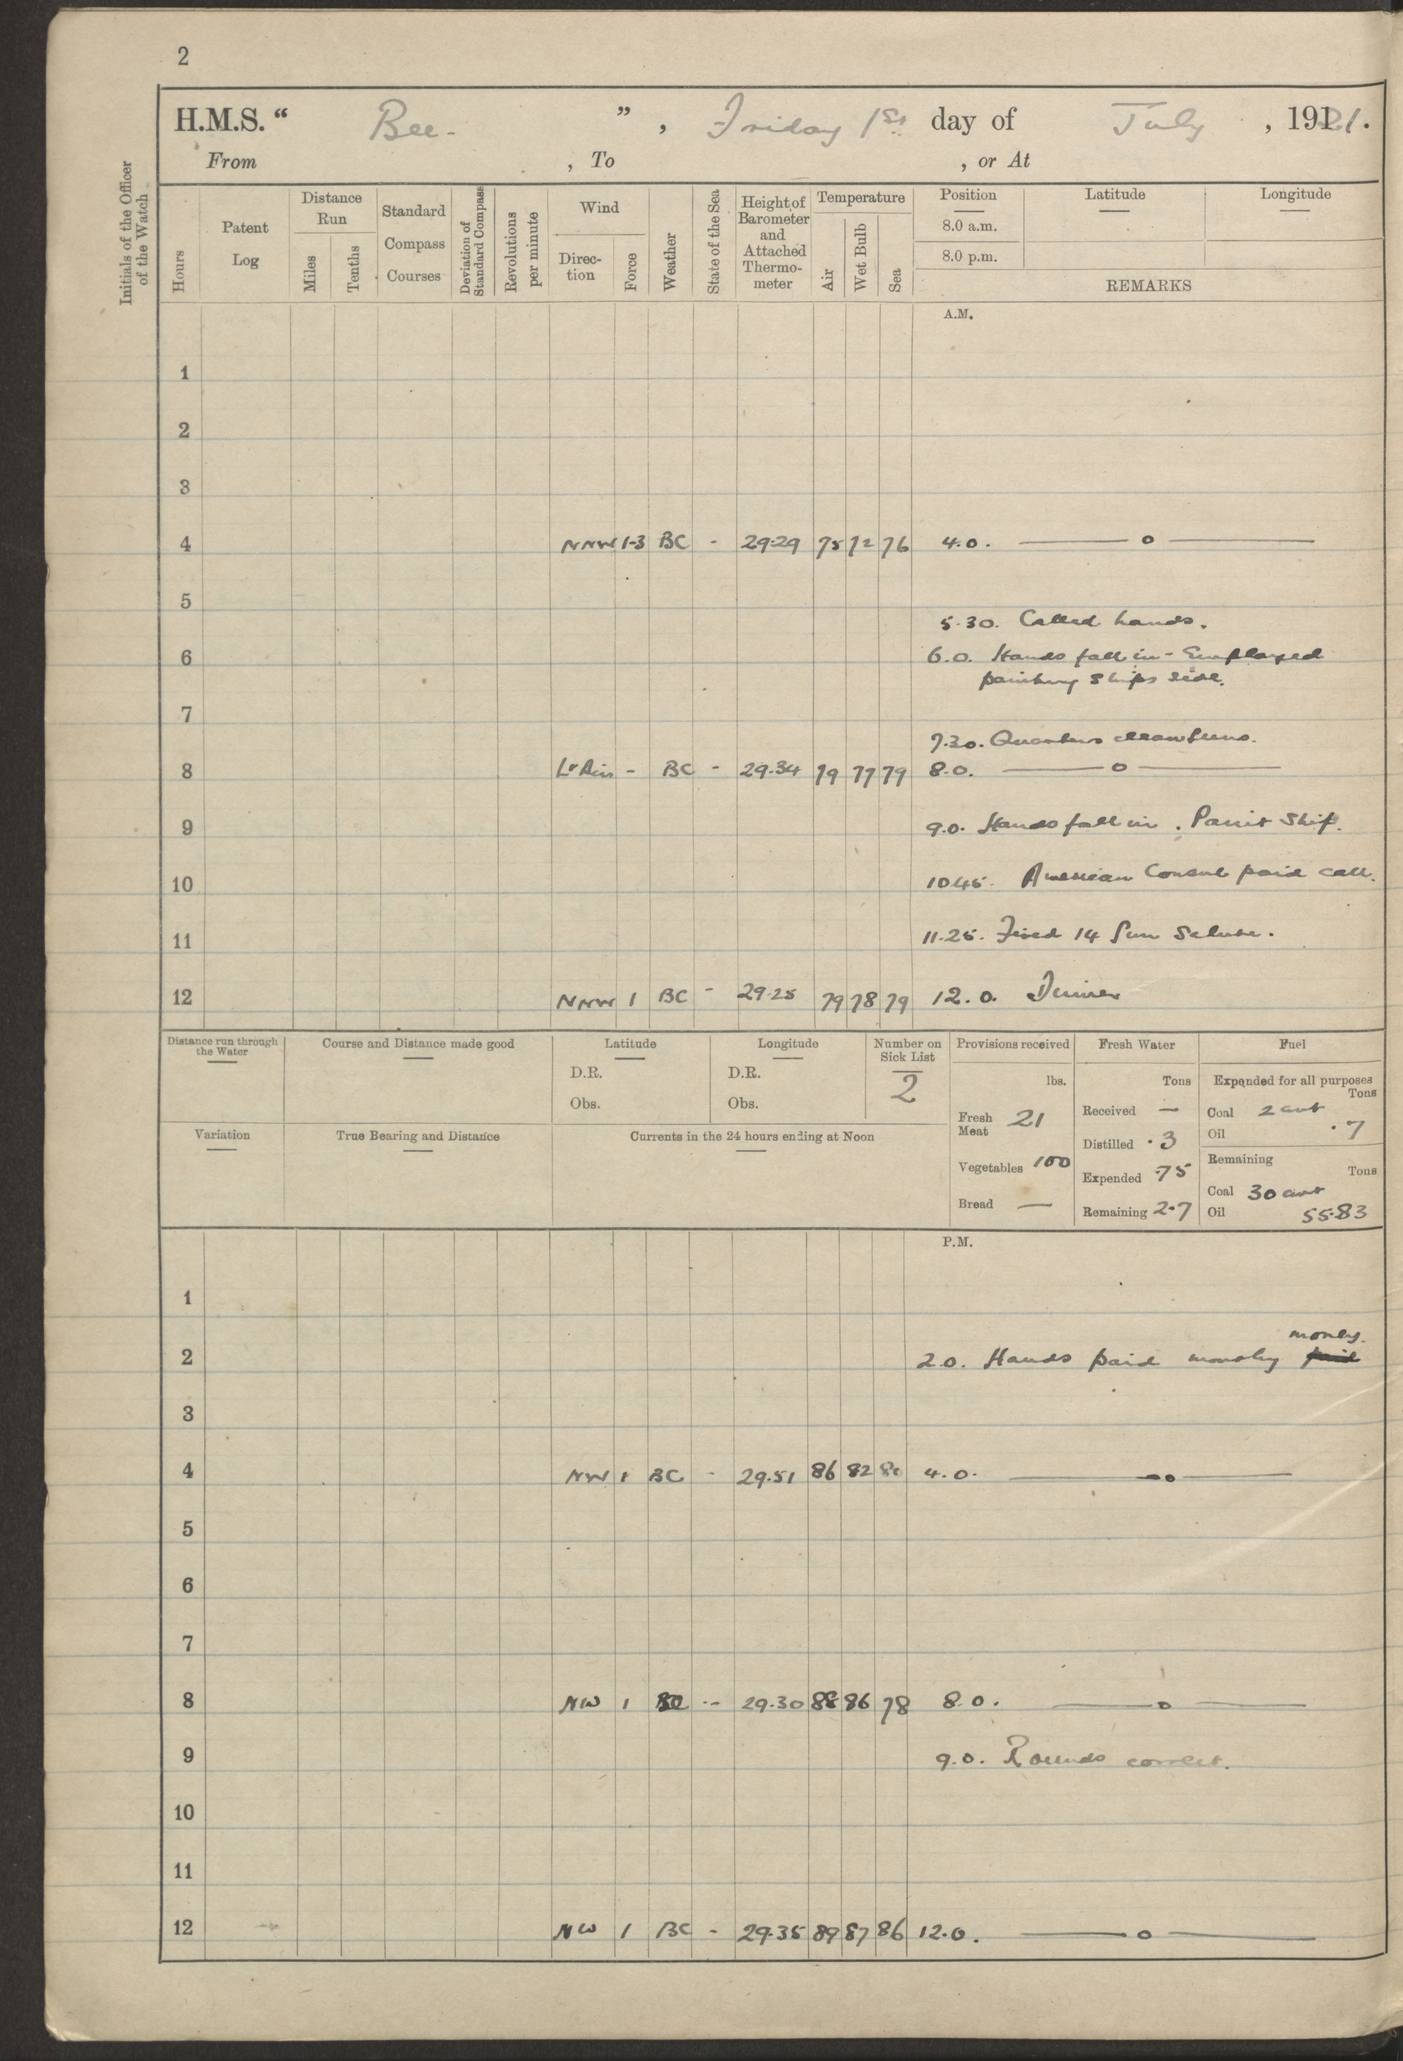 2
H.M.S. “ Bee. ” , Friday 1st day of July , 1921.
From , To , or At
Initials of the Officer of the Watch
Hours
Patent Log
Distance Run
Miles
Tenths
Standard Compass Courses
Deviation of Standard Compass
Revolutions per minute
Wind
Direction
Force
Weather
State of the Sea
Height of Barometer and Attached Thermometer
Temperature
Air
Wet Bulb
Sea
Position
8.0 a.m.
8.0 p.m.
Latitude
Longitude
REMARKS
A.M.
1
2
3
4 NNW 1-3 BC - 29.29 75 72 76 4.0. — o —
5
5.30. Called hands.
6 6.0. Hands fall in - Employed
painting ships side.
7
7.30. Quarters clean Guns.
8 Lt Airs - BC - 29.34 79 77 79 8.0. — o —
9 9.0. Hands fall in. Paint Ship.
10 10.45. American Consul paid call.
11 11.25. Fired 14 Gun Salute.
12 NNW 1 BC - 29.25 79 78 79 12.0. Dinner
Distance run through the Water
Course and Distance made good
Latitude
D.R.
Obs.
Longitude
D.R.
Obs.
Number on Sick List
2
Variation
True Bearing and Distance
Currents in the 24 hours ending at Noon
Provisions received
lbs.
Fresh Meat 21
Vegetables 100
Bread —
Fresh Water
Tons
Received —
Distilled .3
Expended .75
Remaining 2.7
Fuel
Expended for all purposes
Tons
Coal 2 cwt
Oil .7
Remaining
Tons
Coal 30 cwt
Oil 55.83
P.M.
1
money.
2 2.0. Hands paid monthly paid
3
4 NW 1 BC - 29.51 86 82 80 4.0. — o —
5
6
7
8 NW 1 BC - 29.30 88 86 78 8.0. — o —
9 9.0. Rounds correct.
10
11
12 NW 1 BC - 29.35 89 87 86 12.0. — o —